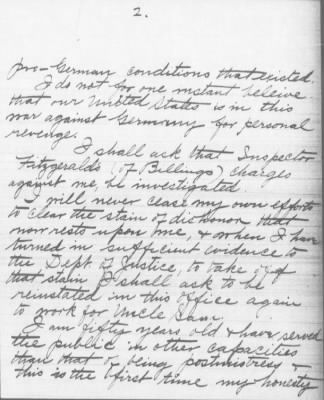 2.
pro-German conditions that existed.
I do not for one instant beleive
that our United States is in this
war against Germany for personal
revenge.
I shall ask that Inspector
Fitzgeralds (of Billings) charges
against me, be investigated.
I will never cease my own efforts
to clear the stain of dishonor that
now rests upon me, & when I have
turned in sufficient evidence to
the Dept. of Justice, to take off
that stain I shall ask to be
reinstated in this office again
to work for Uncle Sam.
I am fifty years old & have served
the public in other capacities
than that of being postmistress &
this is the first time my honesty